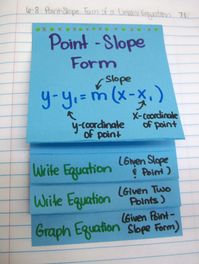 6-8 Point-Slope Form of a Linear Equation 71
Point - Slope
Form
Slope
y-y₁=m(x-x₁)
y-coordinate
of point
x-coordinate
of point
Write Equation (Given Slope
& Point)
Write Equation (Given Two
Points)
Graph Equation (Given Point-
Slope Form)